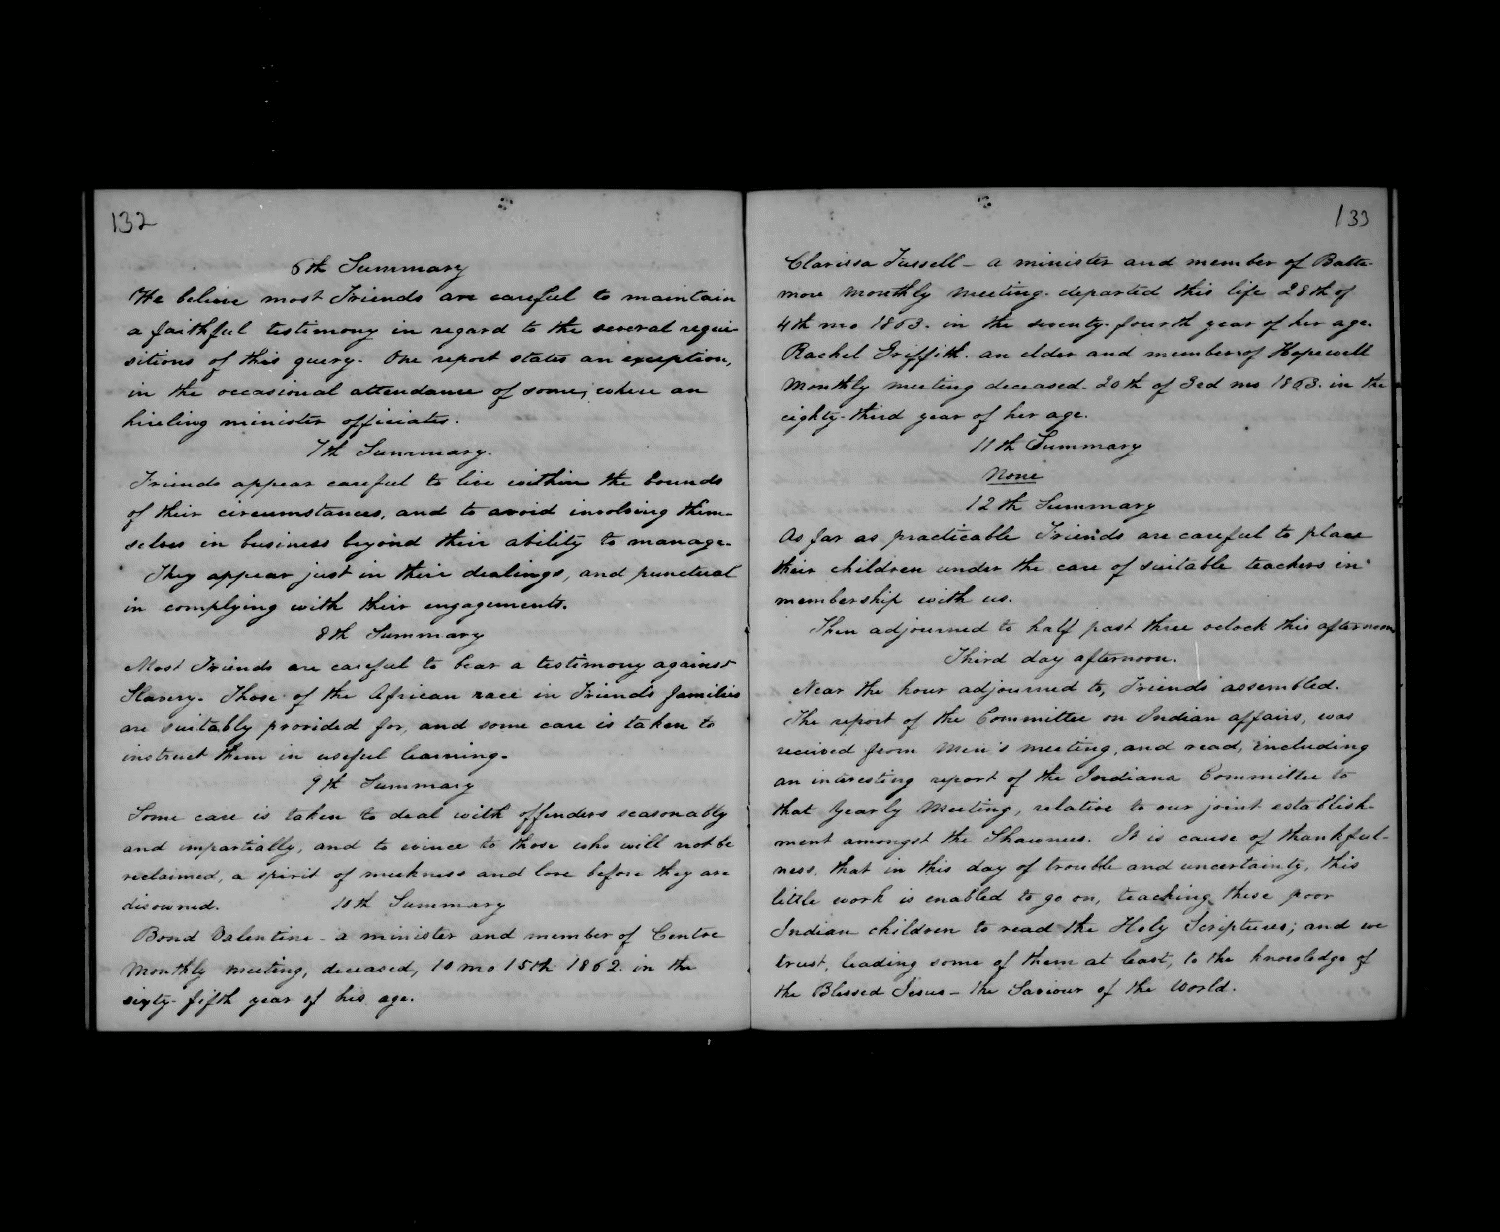 132
6th Summary
We believe most Friends are careful to maintain
a faithful testimony in regard to the several requi-
sitions of this query. One report states an exception,
in the occasional attendance of some, where an
hireling minister officiates.
7th Summary.
Friends appear careful to live within the bounds
of their circumstances, and to avoid involving them-
selves in business beyond their ability to manage.
They appear just in their dealings, and punctual
in complying with their engagements.
8th Summary
Most Friends are careful to bear a testimony against
Slavery. Those of the African race in Friends families
are suitably provided for, and some care is taken to
instruct them in useful learning.
9th Summary
Some care is taken to deal with offenders seasonably
and impartially, and to evince to those who will not be
reclaimed, a spirit of meekness and love before they are
disowned. 10th Summary
Bond Valentine - a minister and member of Centre
Monthly meeting, deceased, 10 mo 15th 1862. in the
sixty-fifth year of his age.
133
Clarissa Tussell - a minister and member of Balti-
more Monthly Meeting. departed this life 28th of
4th mo 1863. in the seventy-fourth year of her age.
Rachel Griffith. an elder and member of Hopewell
Monthly meeting deceased 20th of 3ed mo 1863. in the
eighty-third year of her age.
11th Summary
None
12th Summary
As far as practicable Friends are careful to place
their children under the care of suitable teachers in
membership with us.
Then adjourned to half past three oclock this afternoon
Third day afternoon.
Near the hour adjourned to, Friends assembled.
The report of the Committee on Indian affairs, was
received from Men's meeting, and read, including
an interesting report of the Indiana Committee to
that Yearly Meeting, relative to our joint establish-
ment amongst the Shawnees. It is cause of thankful-
ness, that in this day of trouble and uncertainty, this
little work is enabled to go on, teaching these poor
Indian children to read the Holy Scriptures; and we
trust, leading some of them at least, to the knowledge of
the Blessed Jesus - the Saviour of the World.